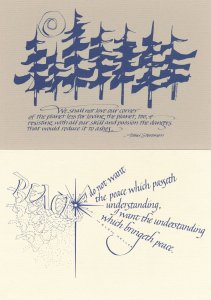 We shall not love our corner
of the planet less for loving the planet, too, &
resisting with all our skill and passion the dangers
that would reduce it to ashes.
Adlai Stevenson
PEACE
I do not want
the peace which passeth
understanding,
I want the understanding
which bringeth peace.